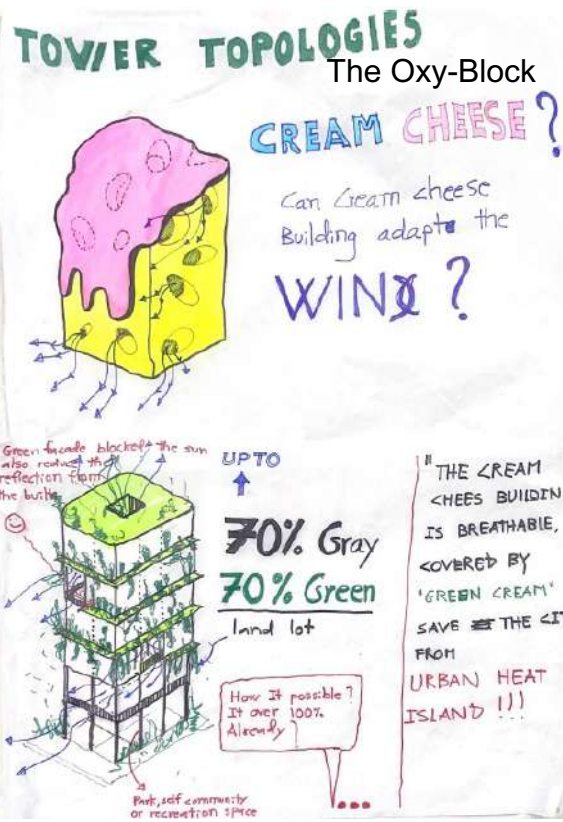 TOWER TOPOLOGIES
The Oxy-Block
CREAM CHEESE?
Can Cream cheese
Building adapt the
WIND?
Green facade blocked the sun
also reduce the
reflection from
the built
UP TO
70% Gray
70% Green
land lot
How It possible?
It over 100%
Already
...
Park, self community
or recreation space
"THE CREAM
CHEES BUILDIN
IS BREATHABLE,
COVERED BY
'GREEN CREAM'
SAVE THE CIT
FROM
URBAN HEAT
ISLAND !!!